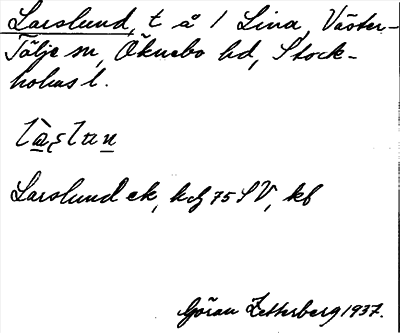 Larslund, t å 1 Lina, Väster-
Tälje sn, Öknebo hd, Stock-
holms l.
Larslund ek, kbg 75 SV, kb
Göran Zetterberg 1937.